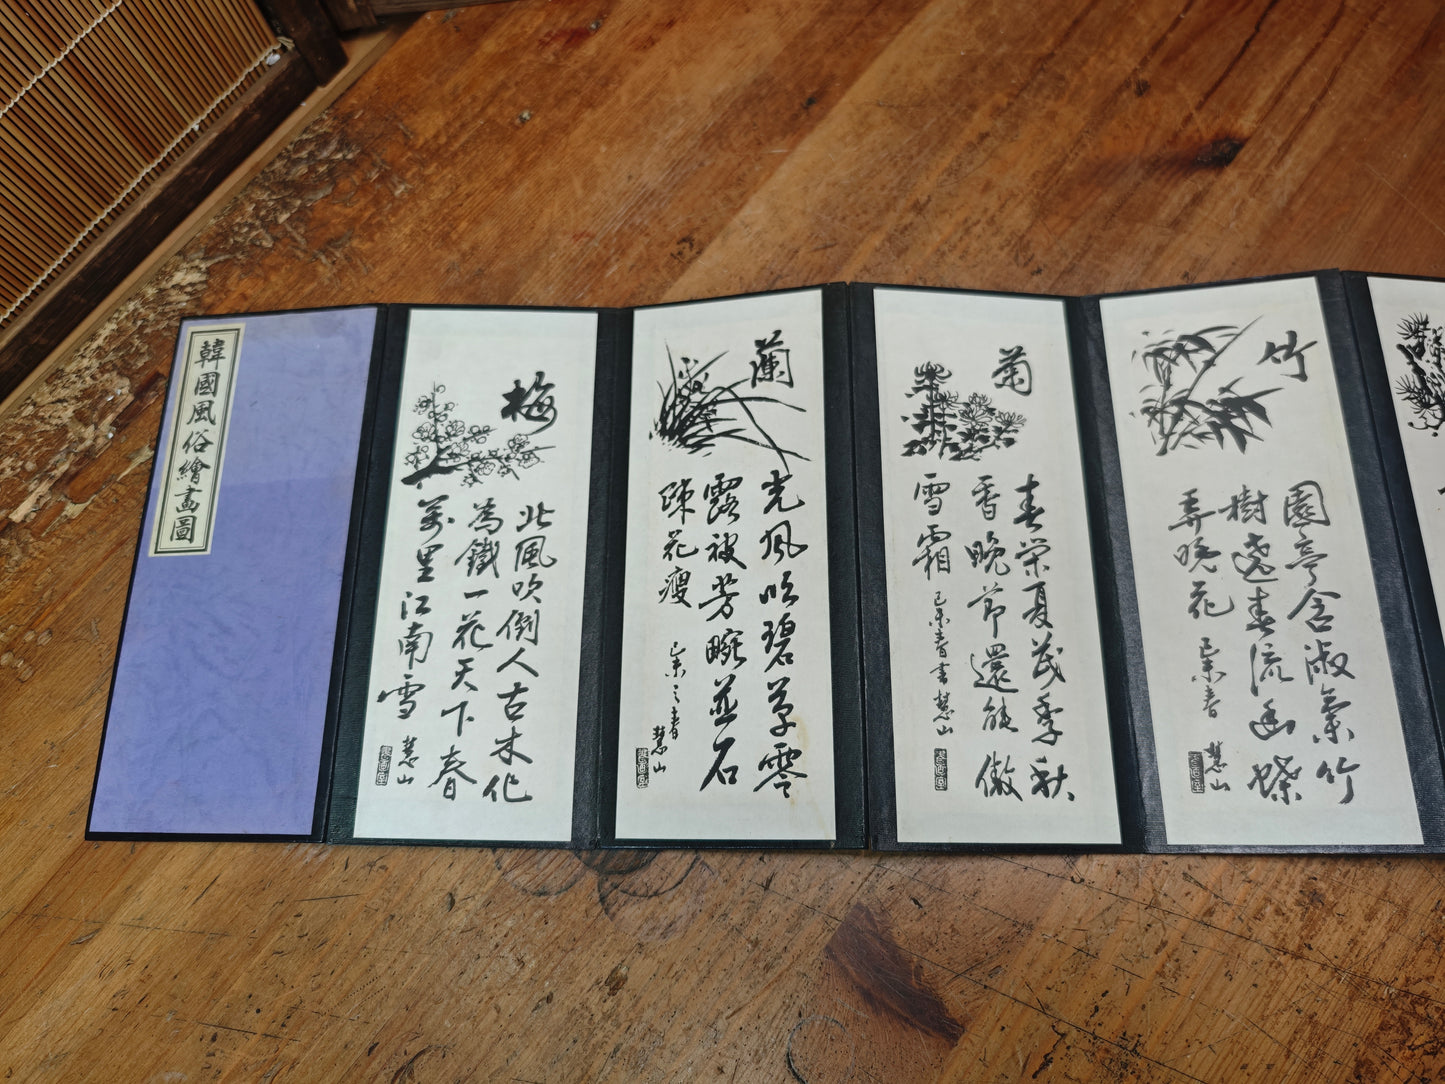 韓國風俗繪畫圖
梅
北風吹倒人古木化
為鐵一花天下春
萬里江南雪
慧山
蘭
光風吹碧草零
露被芳畹並石
疎花瘦
己未之春
慧山
菊
春榮夏茂季秋
香晚節還能傲
雪霜
己未春書慧山
竹
園亭含淑氣竹
樹遶春流幽蝶
弄晚花
己未春
慧山